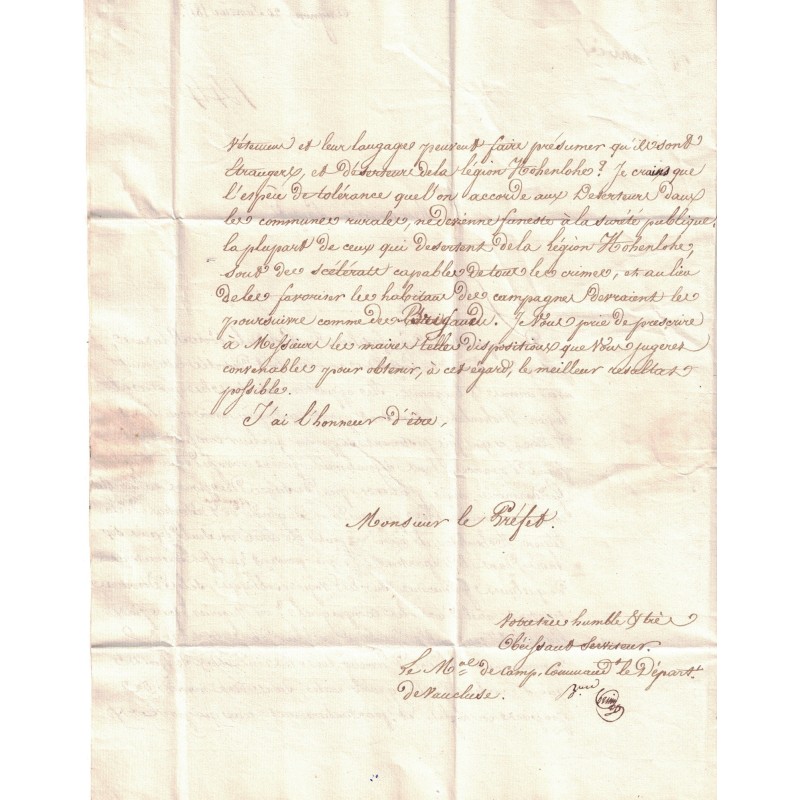 Vêtemens et leur langage peuvent faire présumer qu'ils sont
Etrangers, et déserteurs de la légion Hohenlohe? Je crains que
l'espèce de tolérance que l'on accorde aux Deserteurs dans
les communes rurales, ne devienne funeste à la sureté publique.
la plupart de ceux qui desertent de la légion Hohenlohe,
sont des scélérats capables de tous les crimes, et au lieu
de les favoriser les habitans des campagnes devraient les
poursuivre comme des Brigands. Je Vous prie de prescrire
à Messieurs les maires telles dispositions que Vous jugerez
convenables pour obtenir, à cet égard, le meilleur resultat
possible.
J'ai l'honneur d'être,
Monsieur le Préfet.
Votre très humble & très
Obéissant Serviteur.
Le Mal de Camp, Commandt le Départt
de Vaucluse.